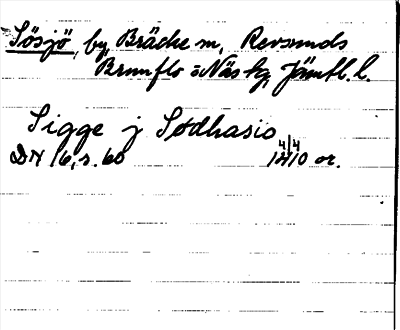 Sösjö, by Bräcke m, Revsunds
Brunflo o Näs tg, Jämtl. l.
Sigge j Sødhasio
DN 16, s. 60 14/4 1410 or.